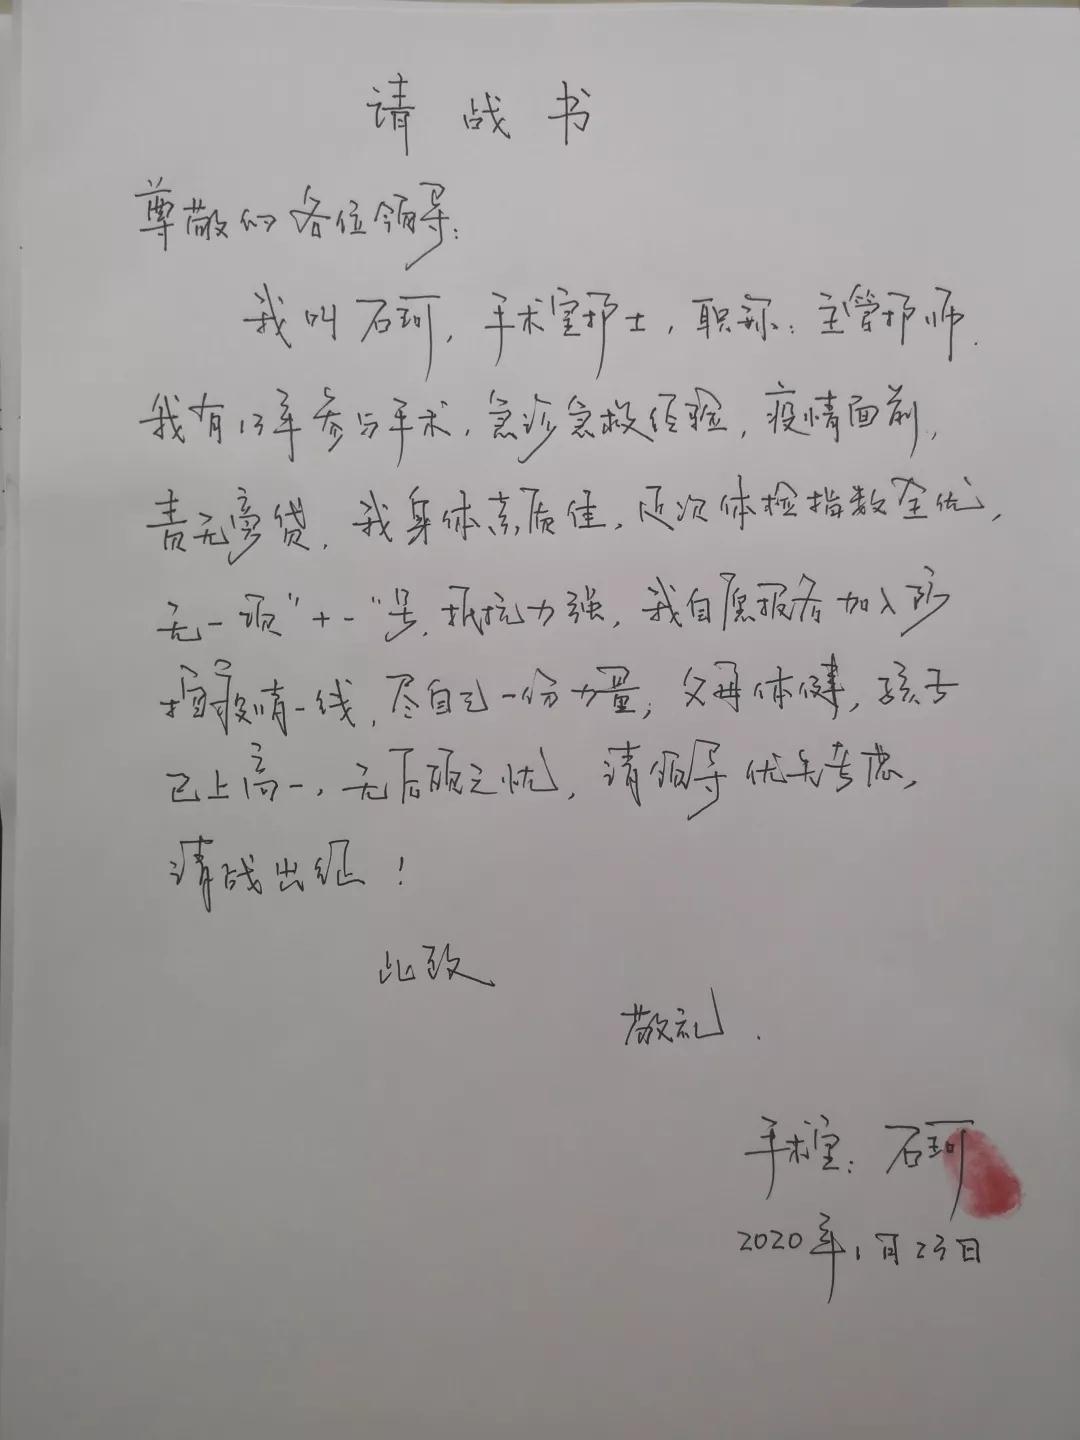 请战书
尊敬的各位领导：
我叫石珂，手术室护士，职称：主管护师.
我有13年参与手术，急诊急救经验，疫情面前，
责无旁贷，我身体素质佳，历次体检指数全优，
无一项“+-”号，抵抗力强，我自愿报名加入防
控疫情一线，尽自己一份力量，父母体健，孩子
已上高一，无后顾之忧，请领导优先考虑，
请战出征！
此致
敬礼.
手术室：石珂
2020年1月23日